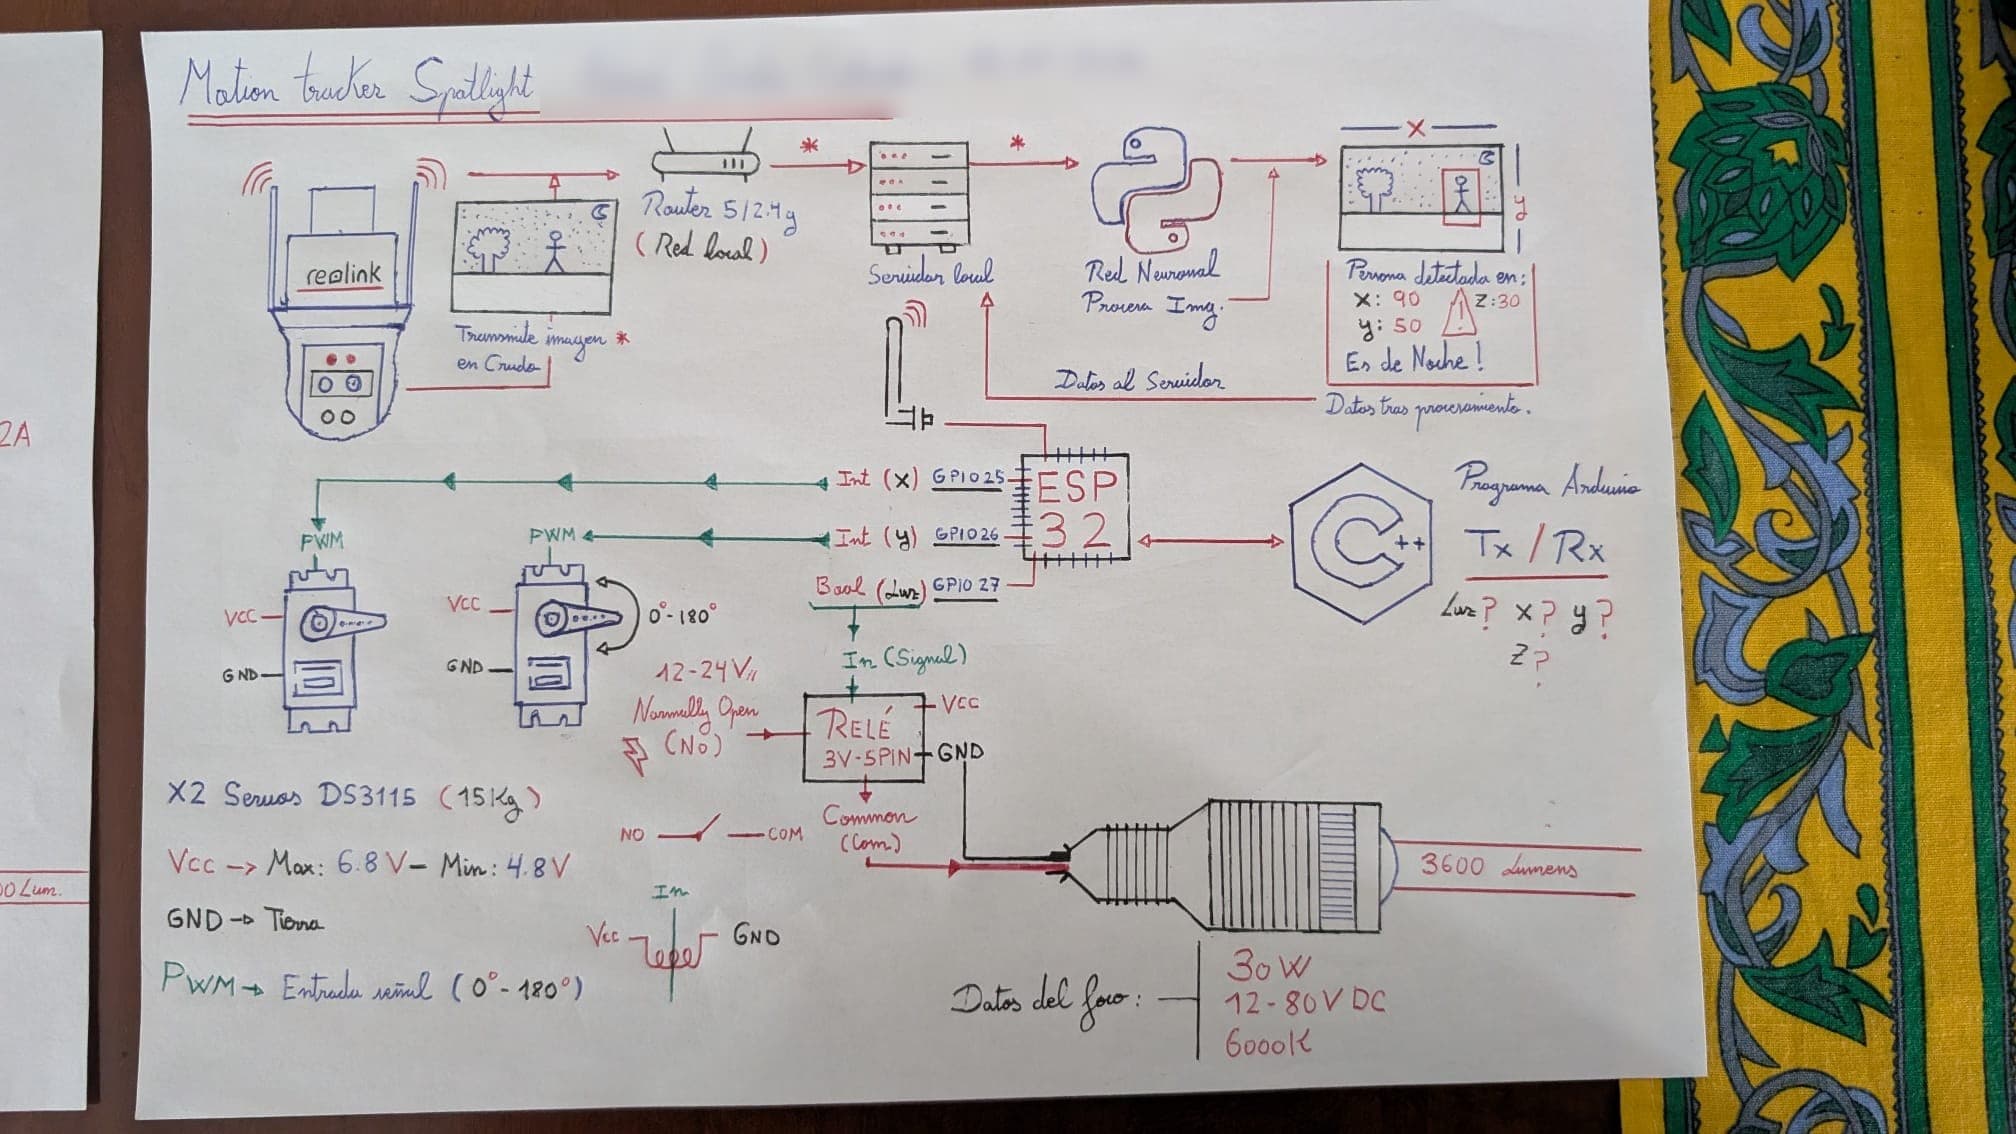 Motion tracker Spotlight
reolink
Transmite imagen *
en Crudo
Router 5/2.4g
(Red local)
*
Servidor local
*
Red Neuronal
Procesa Img.
X
y
Persona detectada en:
X: 90 ! Z:30
y: 50
Es de Noche!
Datos al Servidor
Datos tras procesamiento.
2A
Int (x) GPIO25
Int (y) GPIO26
Bool (Luz) GPIO 27
ESP
32
C++
Programa Arduino
Tx / Rx
Luz? x? y?
Z?
PWM
VCC
GND
PWM
VCC
GND
0°-180°
In (Signal)
12-24V
Normally Open
(No)
RELÉ
3V-5PIN
VCC
GND
Common
(Com)
NO
COM
In
Vcc
GND
X2 Servos DS3115 (15Kg)
Vcc -> Max: 6.8 V - Min: 4.8 V
GND -> Tierra
PWM -> Entrada señal (0°-180°)
3600 Lumens
Datos del foco:
30W
12-80V DC
6000K
00 Lum.